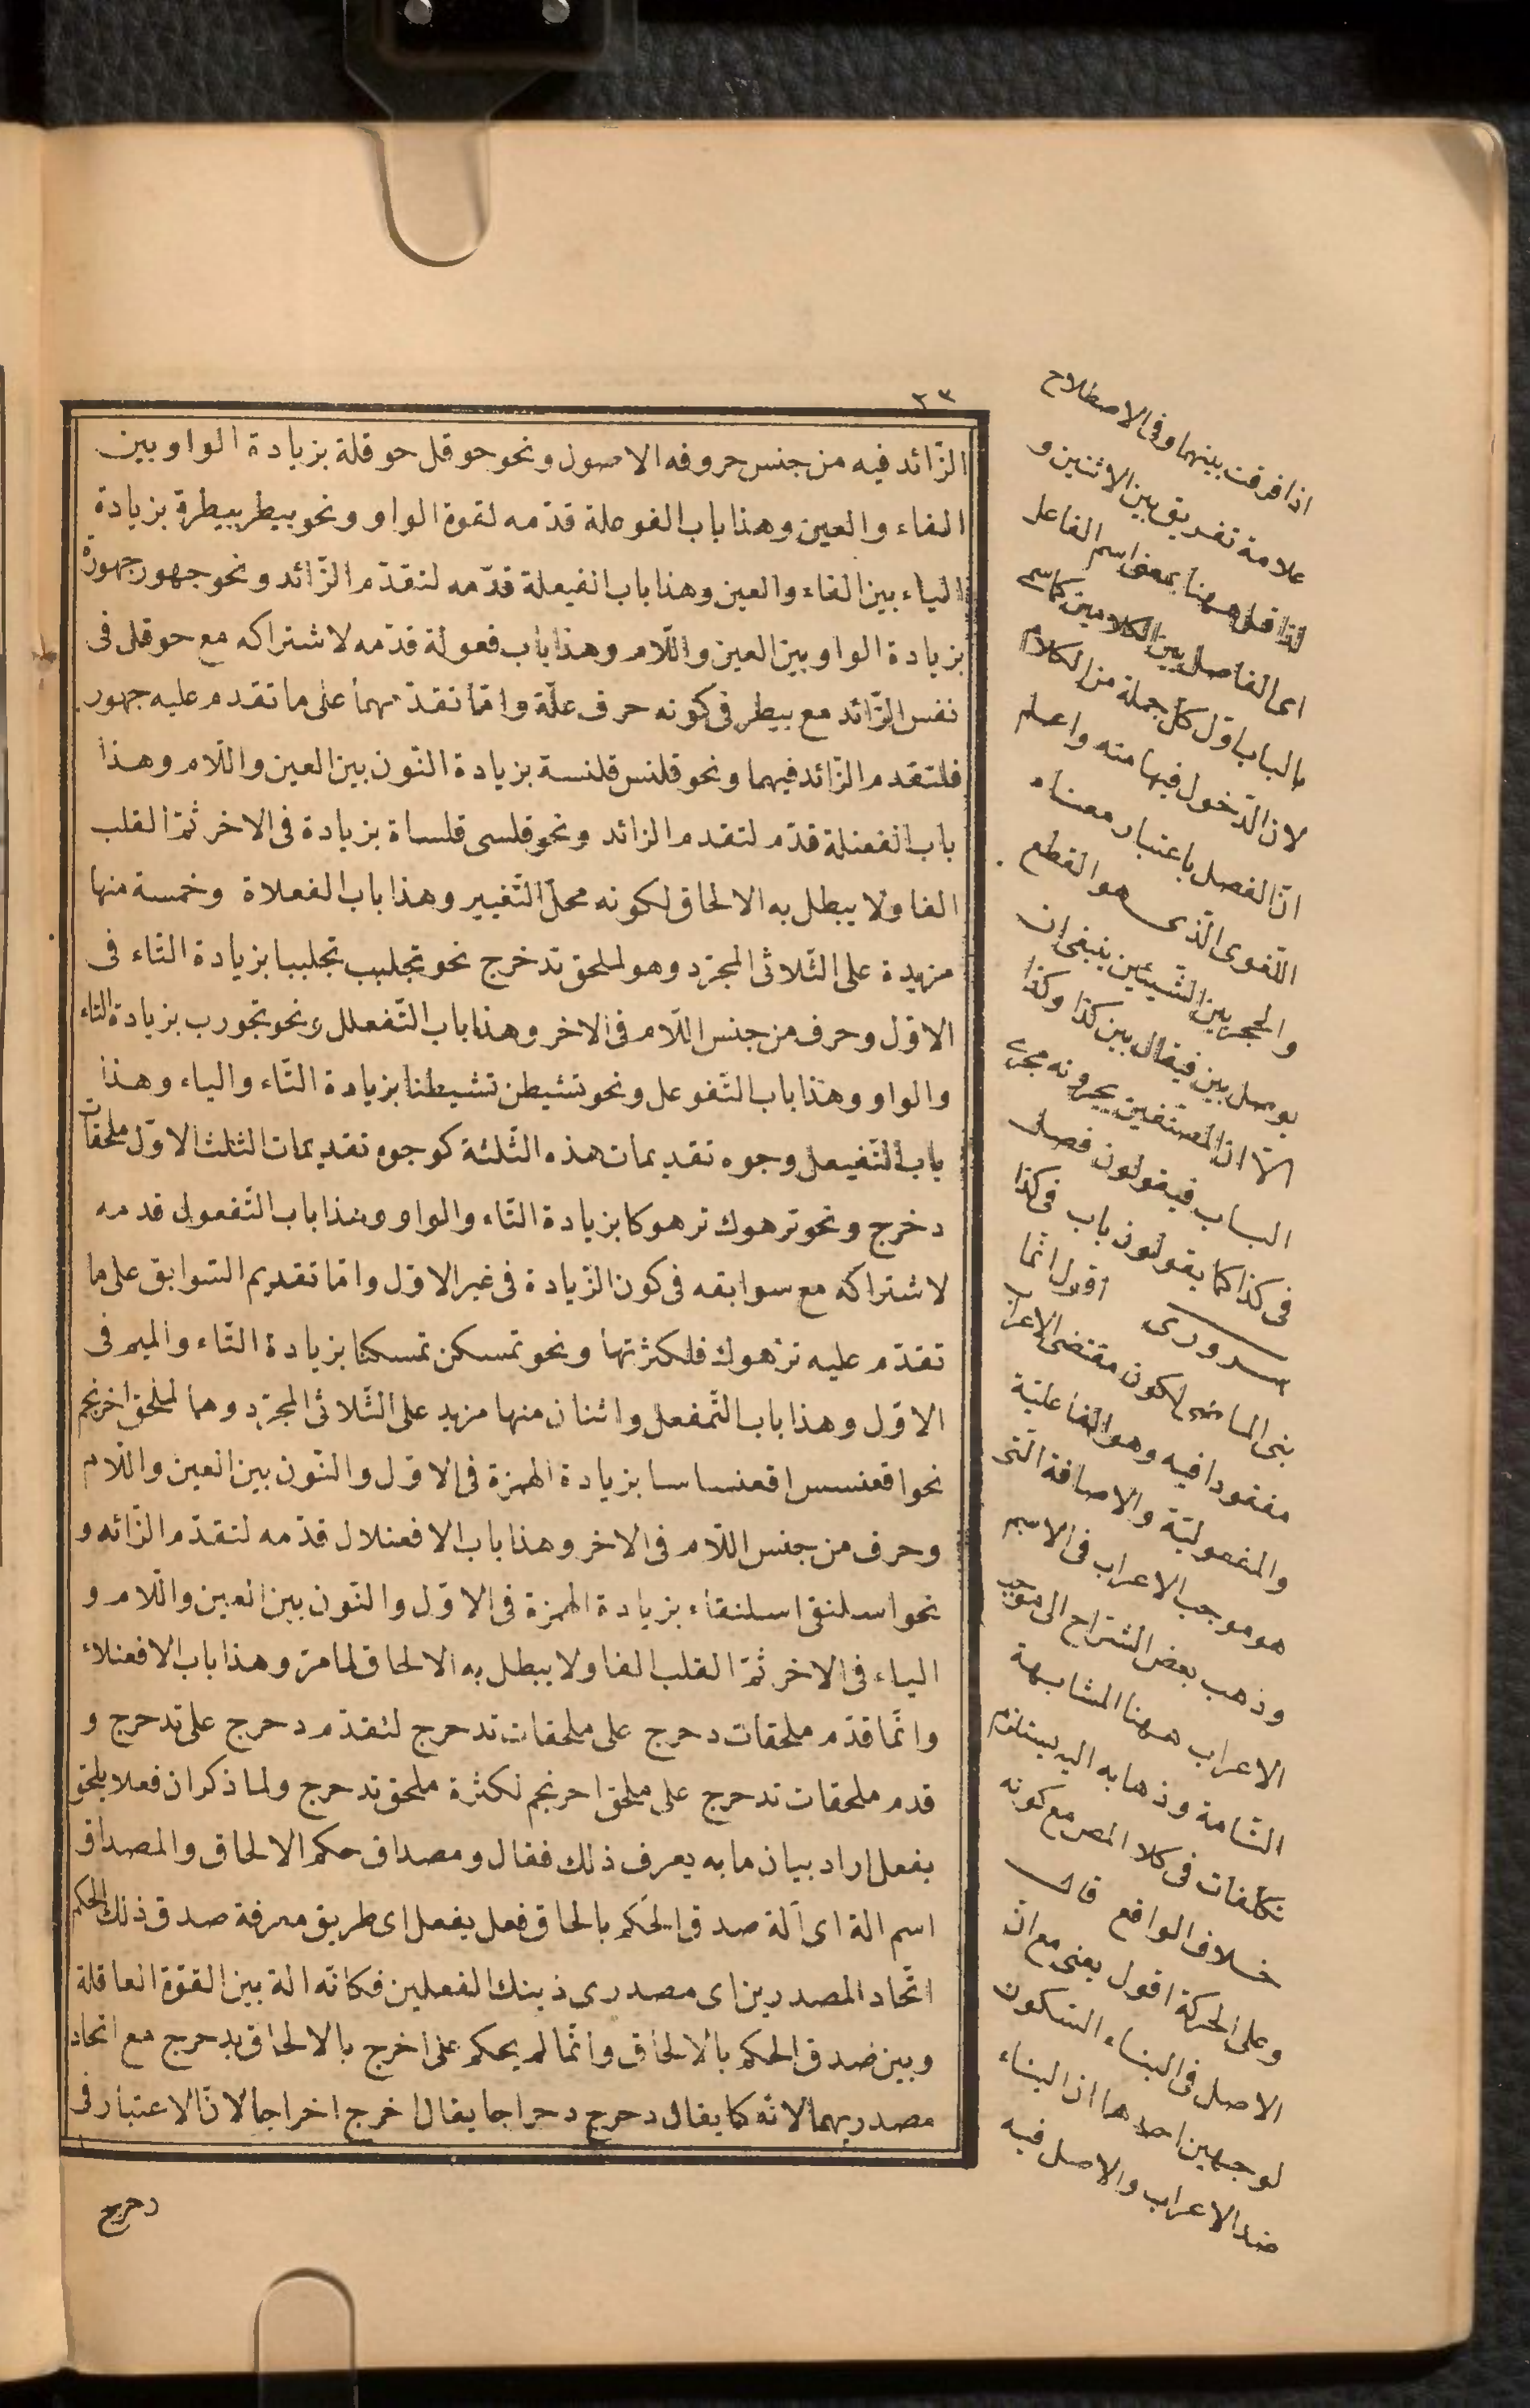 ٢٣
الزّائد فيه من جنس حروفه الاصول ونحو حوقل حوقلة بزيادة الواو بين
الفاء والعين وهذا باب الفوعلة قدّمه لقوة الواو ونحو بيطر بيطرة بزيادة
الياء بين الفاء والعين وهذا باب الفيعلة قدّمه لتقدّم الزّائد ونحو جهور جهورة
بزيادة الواو بين العين واللّام وهذا باب فعولة قدّمه لاشتراكه مع حوقل فى
نفس الزّائد مع بيطر فى كونه حرف علّة وامّا تقدّمهما على ما تقدم عليه جهور
فلتقدم الزّائد فيهما ونحو قلنس قلنسة بزيادة النّون بين العين واللّام وهذا
باب الفعنلة قدّم لتقدم الزائد ونحو قلسى قلساة بزيادة فى الاخر ثمّ القلب
الفا ولا يبطل به الالحاق لكونه محلّ التّغيير وهذا باب الفعلاة وخمسة منها
مزيدة على الثّلاثى المجرّد وهو لملحق تدخرج نحو تجلبب تجلببا بزيادة التاء فى
الاوّل وحرف من جنس اللّام فى الاخر وهذا باب التّفعلل ونحو تجورب بزيادة التاء
والواو وهذا باب التّفوعل ونحو تشيطن تشيطنا بزيادة التّاء والياء وهذا
باب التّفيعل وجوه تقديمات هذه الثّلثة كوجوه تقديمات الثلث الاوّل ملحقات
دخرج ونحو ترهوك ترهوكا بزيادة التّاء والواو وهذا باب التّفعول قدمه
لاشتراكه مع سوابقه فى كون الزّيادة فى غير الاوّل وامّا تقديم السّوابق على ما
تقدّم عليه ترهوك فلكثرتها ونحو تمسكن تمسكنا بزيادة التّاء والميم فى
الاوّل وهذا باب التّمفعل واثنان منها مزيد على الثّلاثى المجرّد وهما لملحق اخرنجم
نحو اقعنسس اقعنساسا بزيادة الهمزة فى الاوّل والنّون بين العين واللّام
وحرف من جنس اللّام فى الاخر وهذا باب الافعنلال قدّمه لتقدّم الزّائد و
نحو اسلنقى اسلنقاء بزيادة الهمزة فى الاوّل والنّون بين العين واللّام و
الياء فى الاخر ثمّ القلب الفا ولا يبطل به الالحاق لما مرّ وهذا باب الافعنلاء
وانّما قدّم ملحقات دحرج على ملحقات تدحرج لتقدّم دحرج على تدحرج و
قدم ملحقات تدحرج على ملحق احرنجم لكثرة ملحق تدحرج ولما ذكر ان فعلا يلحق
بفعل اراد بيان ما به يعرف ذلك فقال ومصداق حكم الالحاق والمصداق
اسم الة اى آلة صدق الحكم بالحاق فعل يفعل اى طريق معرفة صدق ذلك الحكم
اتّحاد المصدرين اى مصدرى ذينك الفعلين فكانّه الة بين القوّة العاقلة
وبين صدق الحكم بالالحاق وانّما لم يحكم على اخرج بالالحاق بدحرج مع اتحاد
مصدريهما لانّه كما يقال دحرج دحراجا يقال اخرج اخراجا لانّ الاعتبار فى
دحرج
اذا فرقت بينهما وفى الاصطلاح
علامة تفريق بين الاثنين و
لذا قيل ههنا بمعنى اسم الفاعل
اى الفاصل بين الكلامين كاسم
الباب اوّل كلّ جملة من الكلام
لان الدّخول فيها منه واعلم
انّ الفصل باعتبار معناه
اللّغوى الّذى هو القطع
والحجر بين الشّيئين ينبغى ان
يوصل بين فيقال بين كذا وكذا
الّا انّ المصنّفين يجرونه مجرى
الباب فيقولون فصل
فى كذا كما يقولون باب فى كذا
سرورى اقول انّما
بنى الماضى لكون مقتضى الاعراب
مفقودا فيه وهو الفاعليّة
والمفعوليّة والاضافة الّتى
هو موجب الاعراب فى الاسم
وذهب بعض الشّراح الى موجب
الاعراب ههنا المشابهة
التّامة وذهابه اليه يستلزم
تكلفات فى كلام المص مع كونه
خلاف الواقع قال
وعلى الحركة اقول يعنى مع انّ
الاصل فى البناء السّكون
لوجهين احدهما ان البناء
ضد الاعراب والاصل فيه